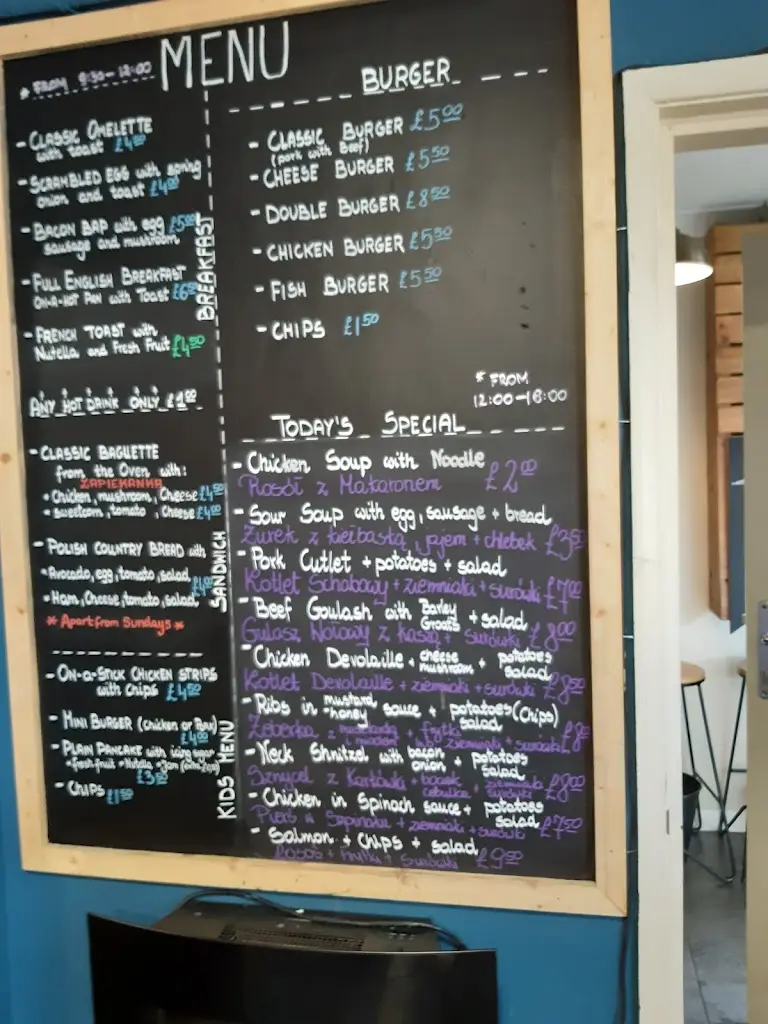 MENU
* FROM 9:30-12:00
- CLASSIC OMELETTE
with toast £4.00
- SCRAMBLED EGG with spring
onion and toast £4.00
- BACON BAP with egg £5.00
sausage and mushroom
- FULL ENGLISH BREAKFAST
ON-A-HOT PAN with Toast £6
- FRENCH TOAST with
Nutella and Fresh Fruit £4.50
BREAKFAST
ANY HOT DRINK ONLY £1.00
- CLASSIC BAGUETTE
from the Oven with:
ZAPIEKANKA
• Chicken, mushroom, Cheese £4.50
• sweetcorn, tomato, Cheese £4.00
- POLISH COUNTRY BREAD with
• Avocado, egg, tomato, salad
• Ham, Cheese, tomato, salad £4
* Apart from Sundays *
SANDWICH
- ON-a-STICK CHICKEN STRIPS
with chips £4.50
- MINI BURGER (chicken or Beef)
£4.00
- PLAIN PANCAKE with icing sugar
• fresh fruit • Nutella • Jam
£3.50
- CHIPS £1.50
KIDS MENU
BURGER
- CLASSIC BURGER £5.00
(pork with Beef)
- CHEESE BURGER £5.50
- DOUBLE BURGER £8.50
- CHICKEN BURGER £5.50
- FISH BURGER £5.50
- CHIPS £1.50
* FROM
12:00-18:00
TODAY'S SPECIAL
- Chicken Soup with Noodle
Rosół z Makaronem £2.00
- Sour Soup with egg, sausage + bread
Żurek z kiełbasą, jajem + chlebek £3.50
- Pork Cutlet + potatoes + salad
Kotlet Schabowy + ziemniaki + surówki £7.00
- Beef Goulash with Barley Groats + salad
Gulasz Wołowy z Kaszą + surówki £8.00
- Chicken Devolaille + cheese mushroom + potatoes salad
Kotlet Devolaille + ziemniaki + surówki £8.50
- Ribs in mustard honey sauce + potatoes (Chips) salad
Żeberka z + frytki ziemniaki + surówki £8
- Neck Shnitzel with bacon onion + potatoes salad
Sznycel z Karkówki + boczek cebulka ziemniaki surówki £8.00
- Chicken in Spinach sauce + potatoes salad
Pierś w Szpinaku + ziemniaki + surówki £7.50
- Salmon + chips + salad
Łosoś + frytki + surówki £9.00